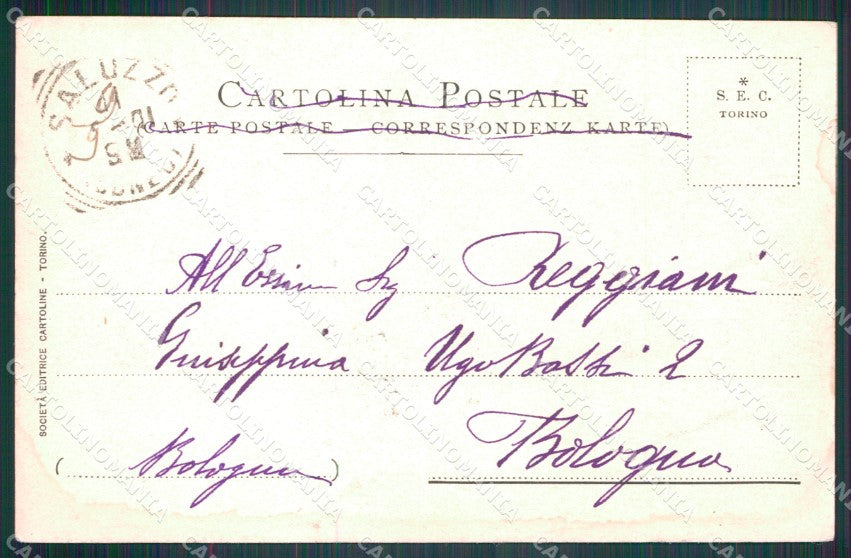 CARTOLINA POSTALE
(CARTE POSTALE – CORRESPONDENZ KARTE)
*
S. E. C.
TORINO
SALUZZO
(CUNEO)
SOCIETÀ EDITRICE CARTOLINE - TORINO.
All'Essim Sig Reggiani
Giuseppina Ugo Bassi 2
Bologna
(Bologna)
CARTOLINOMANIA